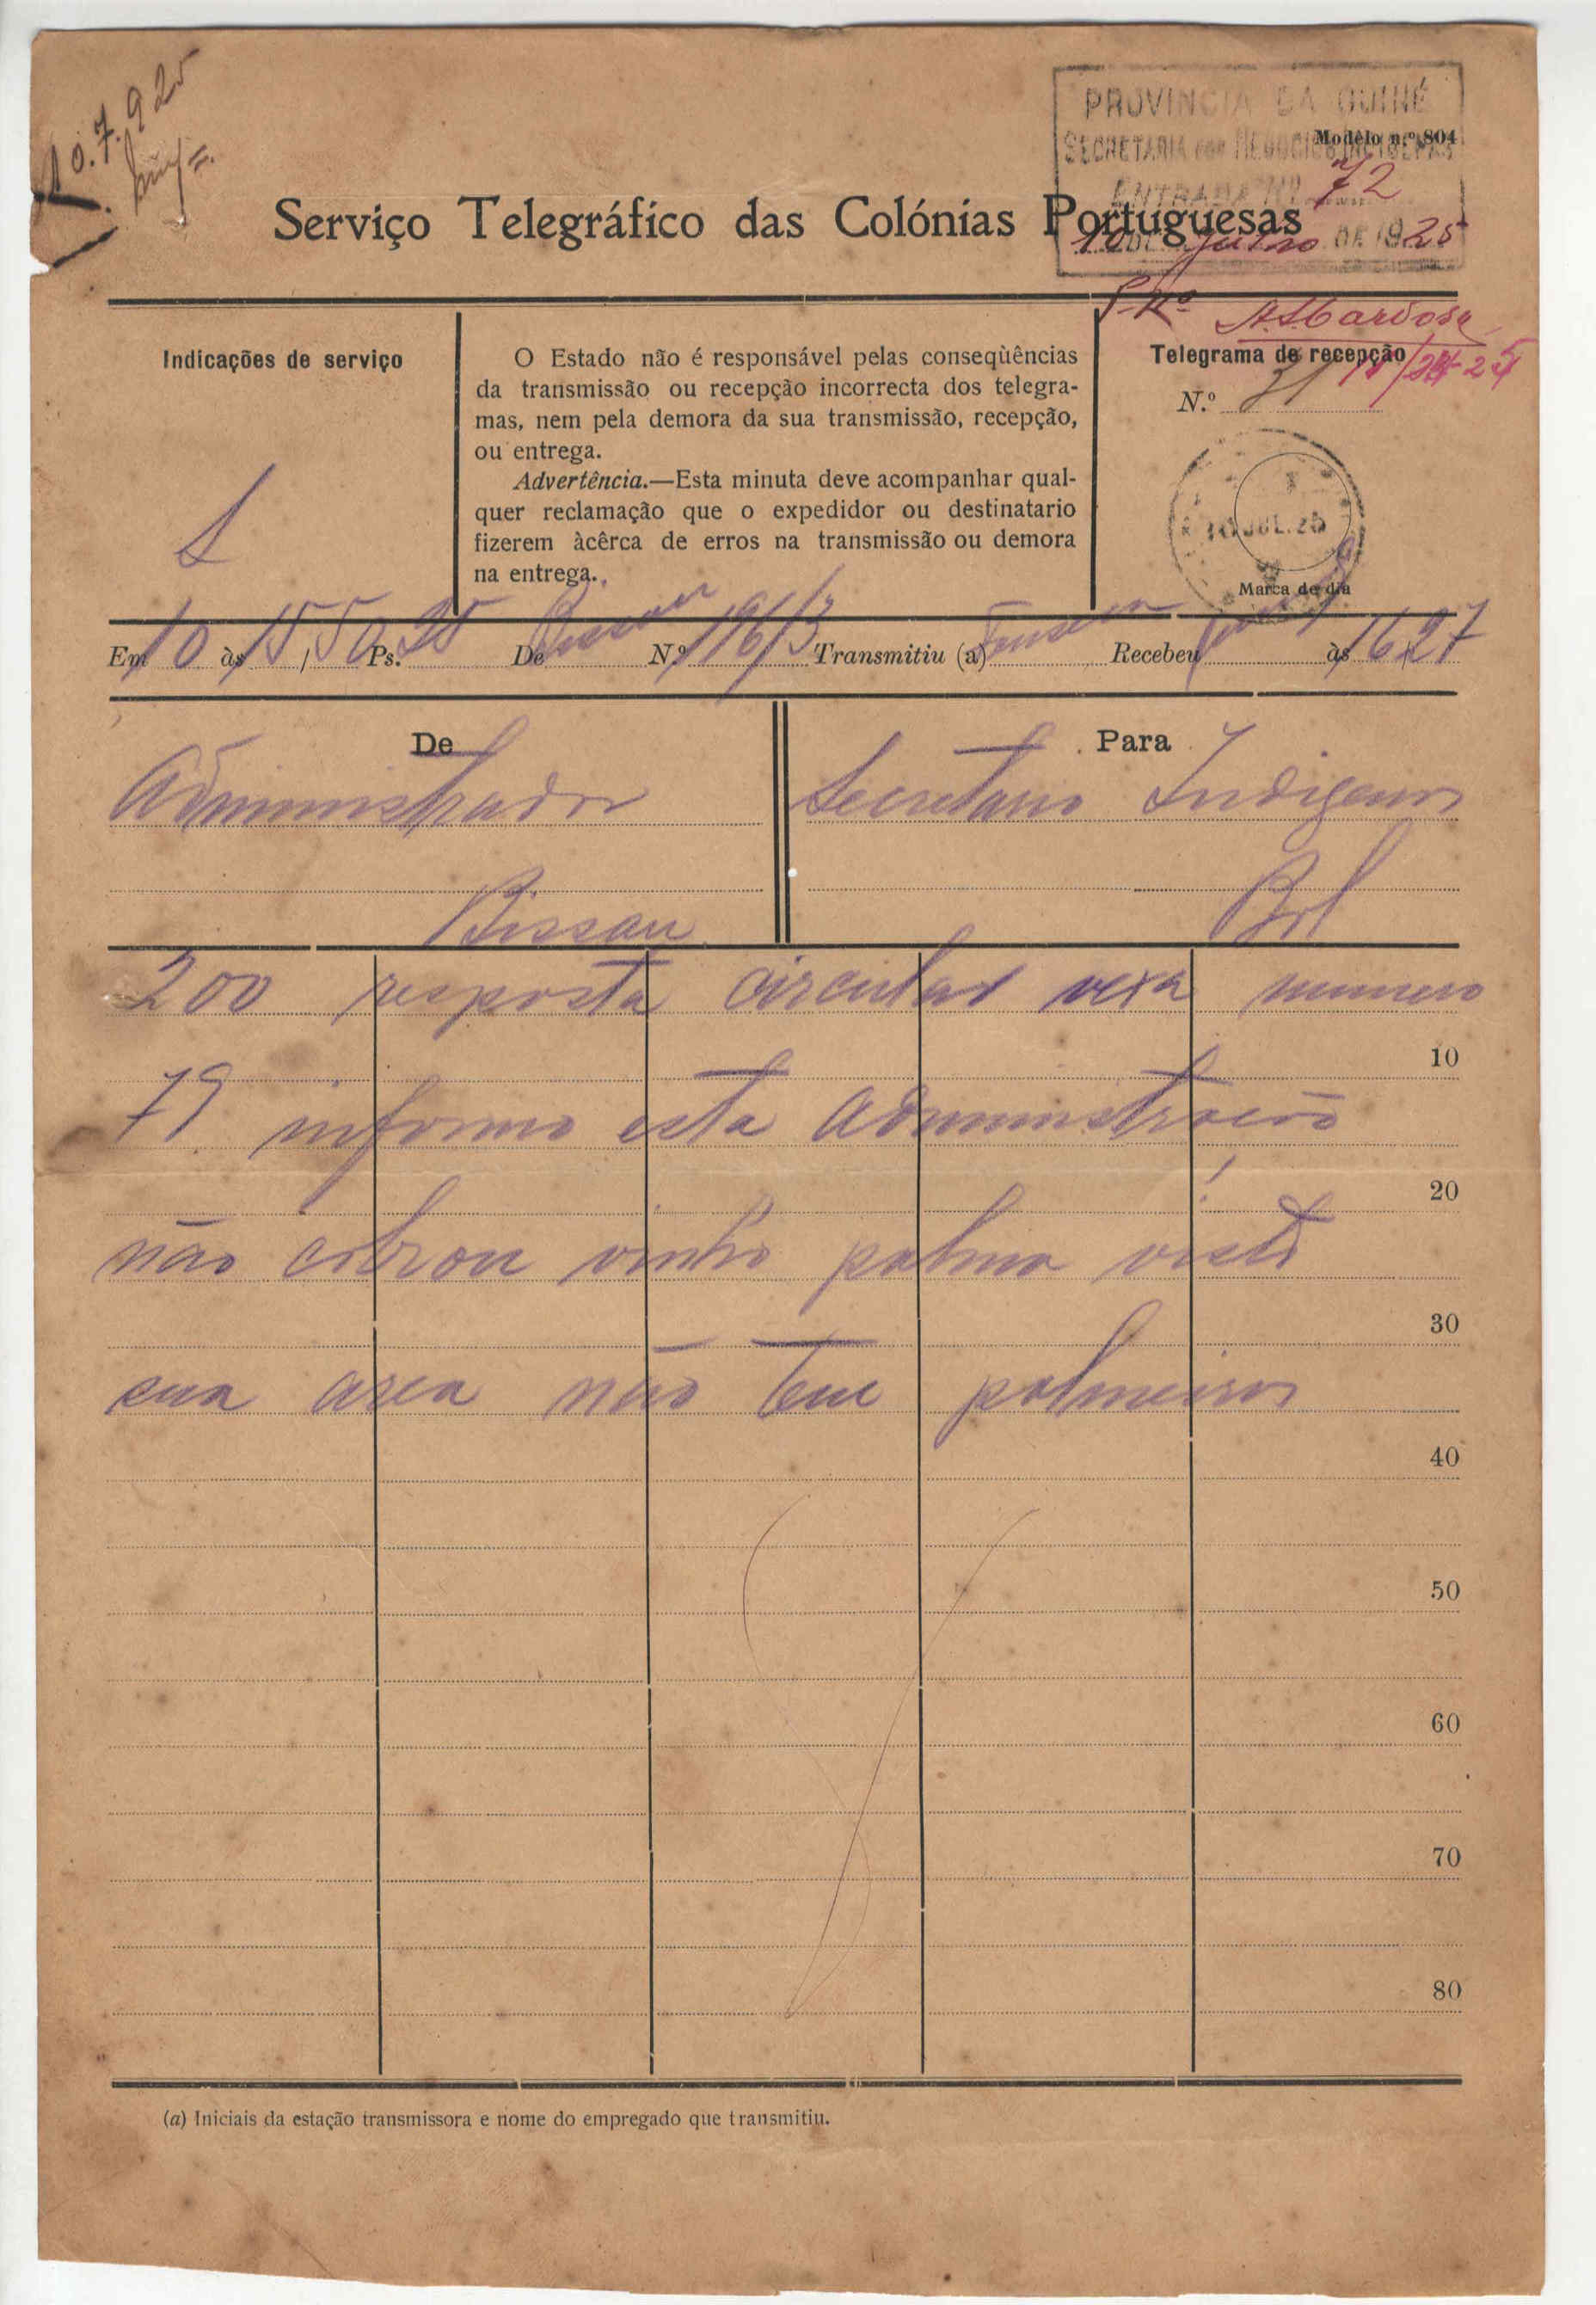 10.7.925
PROVINCIA DA GUINÉ
Modêlo n.º 804
SECRETARIA DOS NEGOCIOS INDIGENAS
ENTRADA Nº 72
10 DE Julho DE 1925
Serviço Telegráfico das Colónias Portuguesas
Indicações de serviço
S
O Estado não é responsável pelas conseqùências
da transmissão ou recepção incorrecta dos telegra-
mas, nem pela demora da sua transmissão, recepção,
ou entrega.
Advertência.—Esta minuta deve acompanhar qual-
quer reclamação que o expedidor ou destinatario
fizerem àcêrca de erros na transmissão ou demora
na entrega.
Telegrama de recepção
N.º 31
10 JUL. 25
Marca de dia
Em 10 às 15,50 Ps. 25 De Bissau Nº 196/3 Transmitiu (a) Recebeu às 16,27
De
Administrador
Bissau
Para
Secretario Indigenas
Bol
200 resposta circular vexa numero
10
79 informo esta Administração
20
não cobrou vinho palma visto
30
sua area não tem palmeiras
40
50
60
70
80
(a) Iniciais da estação transmissora e nome do empregado que transmitiu.